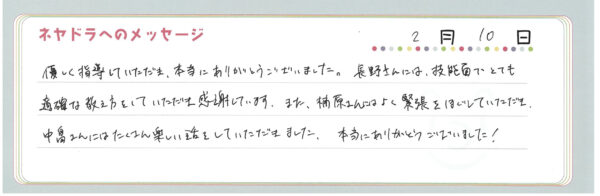 ネヤドラへのメッセージ
2月10日
優しく指導していただき、本当にありがとうございました。長野さんには、技能面でとても
適確な教え方をしていただき感謝しています。また、楠原さんにはよく緊張をほぐしていただき、
中畠さんにはたくさん楽しい話をしていただきました。本当にありがとうございました！